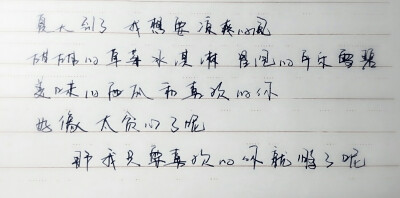 夏天到了 我想要凉爽的风
甜甜的草莓冰淇淋 冒泡的可乐雪碧
美味的西瓜和喜欢的你
好像太贪心了呢
那我只要喜欢的你就够了呢